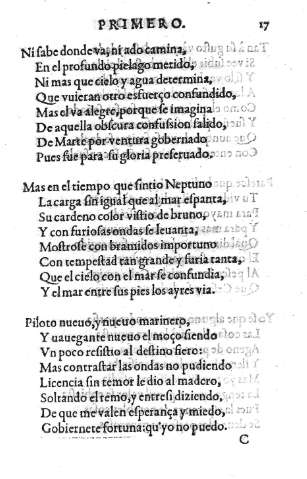 PRIMERO. 17
Ni sabe donde va, ni ado camina,
En el profundo pielago metido,
Ni mas que cielo y agua determina,
Que vuieran otro esfuerço confundido,
Mas el va alegre, porque se imagina
De aquella obscura confussion salido,
De Marte por ventura gobernado
Pues fue para su gloria preseruado.
Mas en el tiempo que sintio Neptuno
La carga sin igual que al mar espanta,
Su cardeno color vistio de bruno,
Y con furiosas ondas se leuanta,
Mostrose con bramidos importuno
Con tempestad tan grande y furia tanta,
Que el cielo con el mar se confundia,
Y el mar entre sus pies los ayres via.
Piloto nueuo, y nueuo marinero,
Y nauegante nueuo el moço siendo
Vn poco resistio al destino fiero:
Mas contrastar las ondas no pudiendo
Licencia sin temor le dio al madero,
Soltando el remo, y entre si diziendo,
De que me valen esperança y miedo,
Gobiernete fortuna: qu'yo no puedo.
C